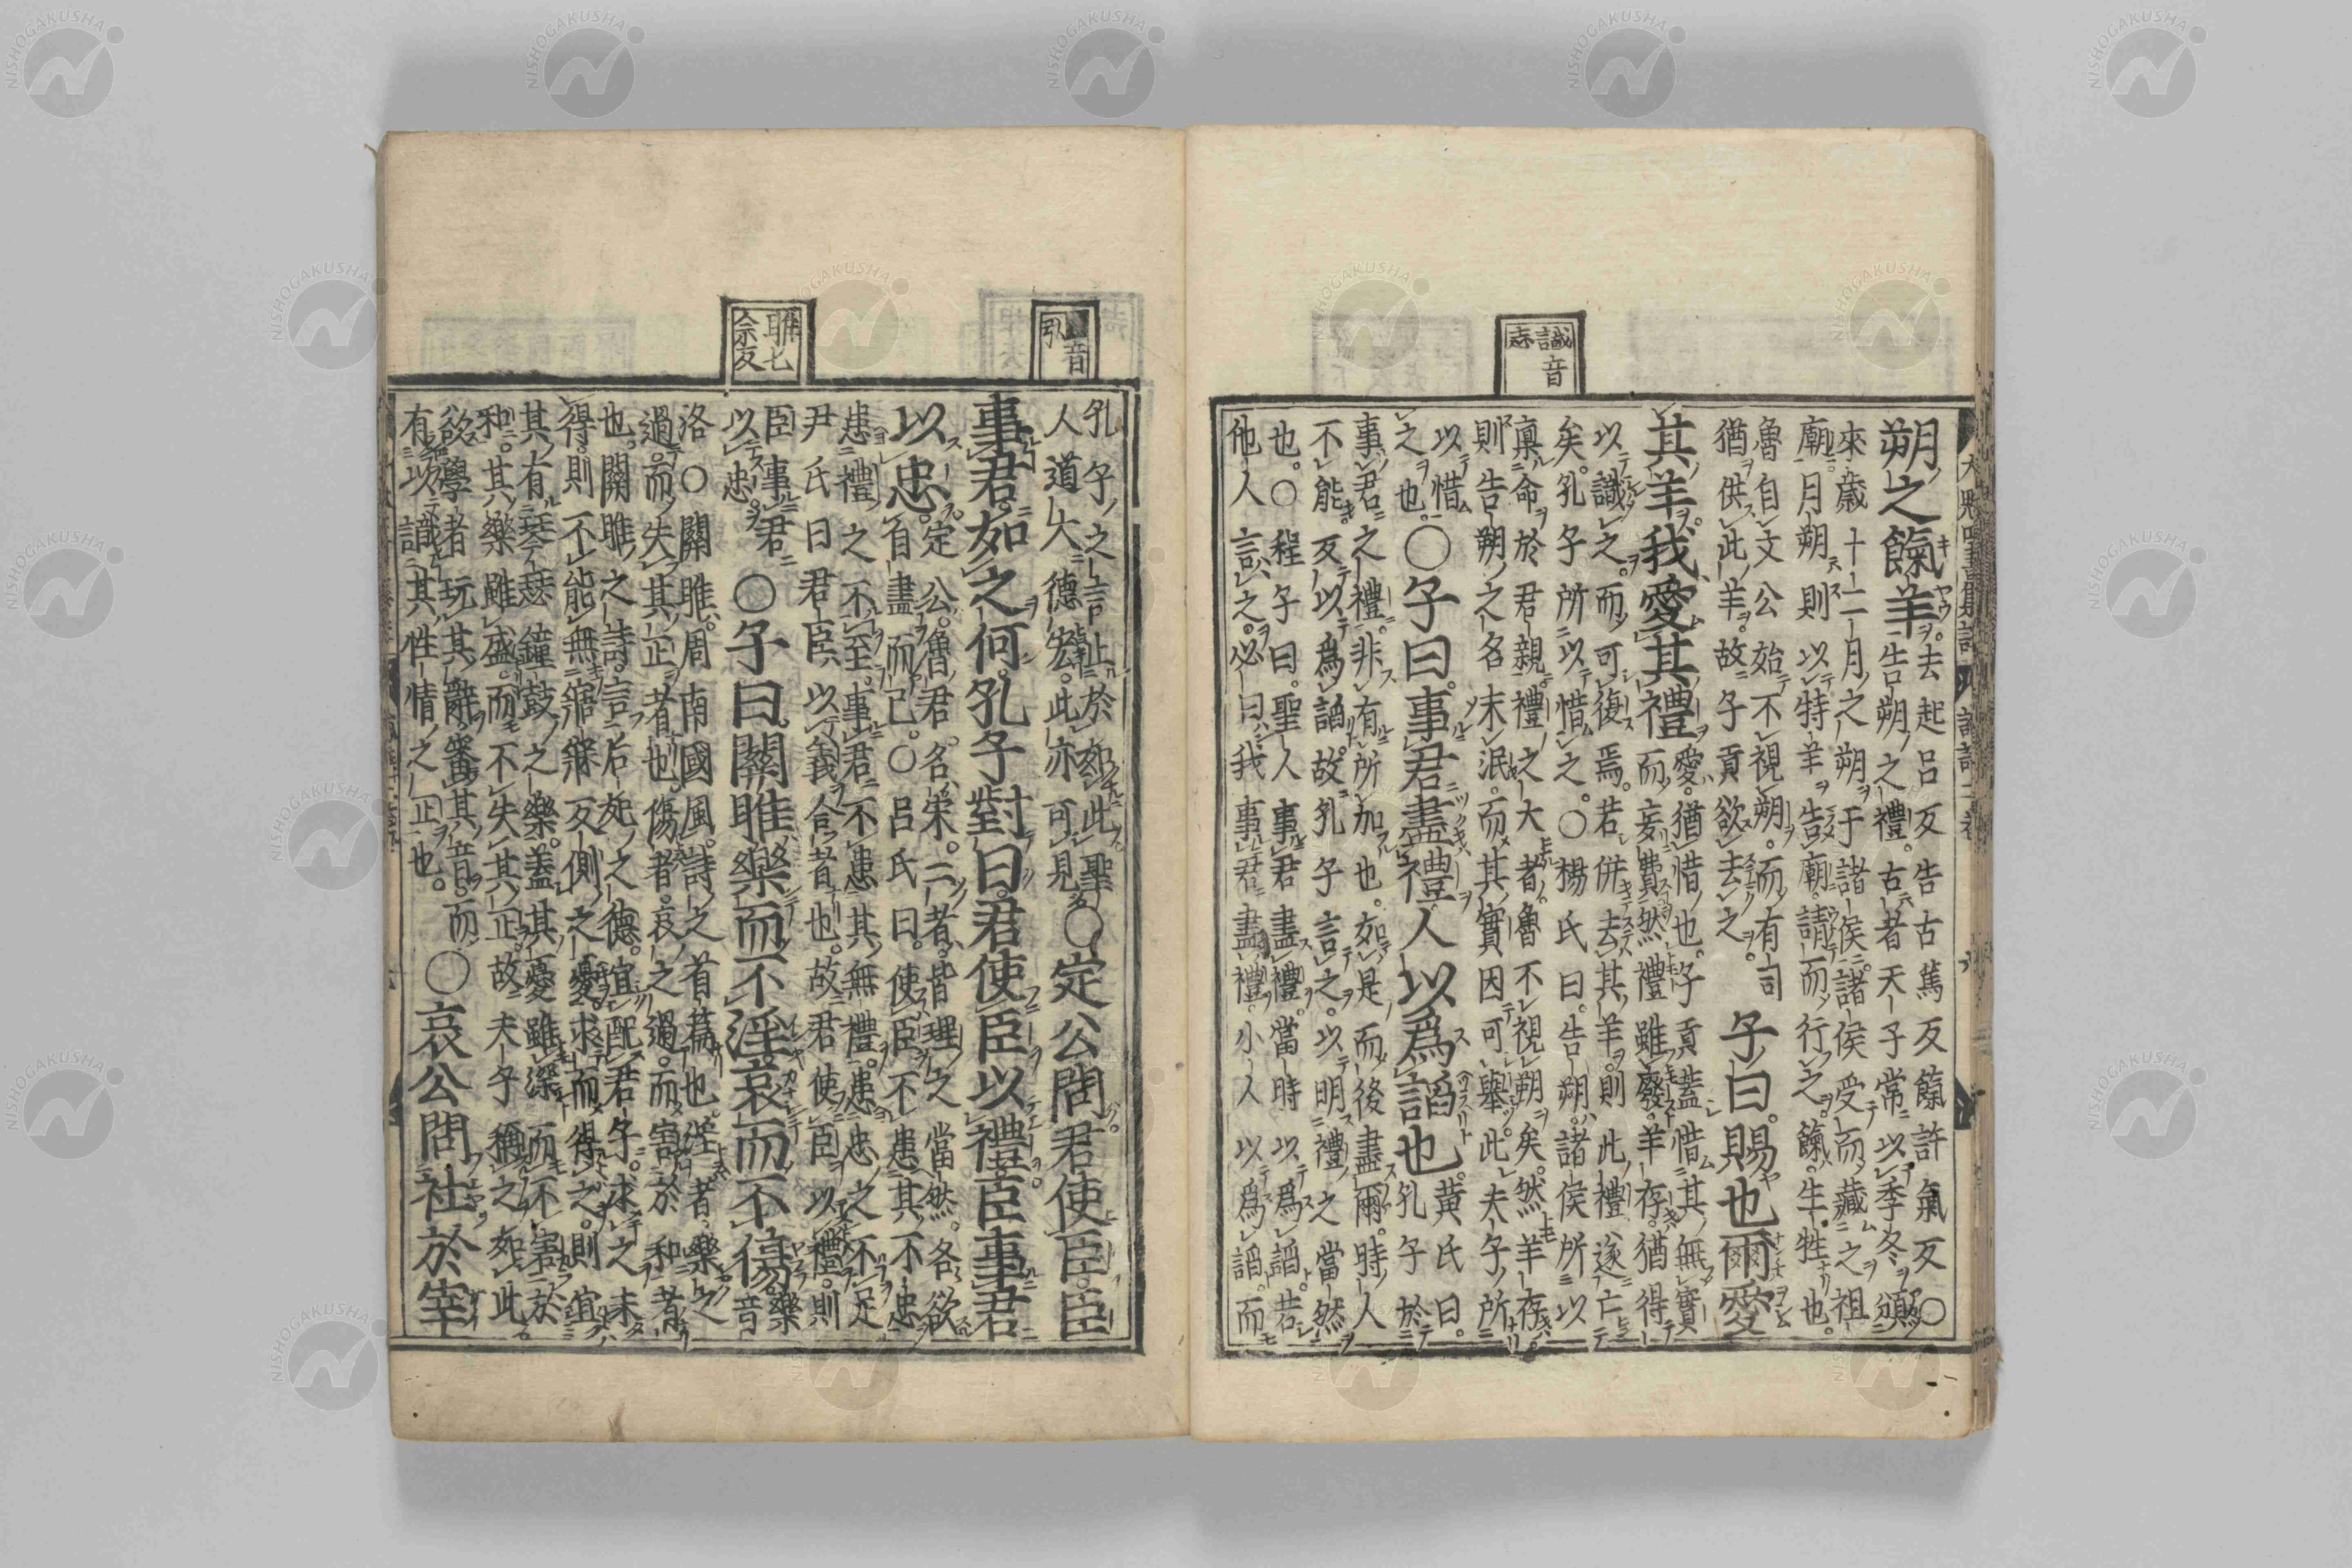 識音
志
大魁四書集註 論語二卷 九
朔之餼羊。去起呂反告古篤反餼許氣反○
告朔之禮。古者天子常以季冬頒
來歲十二月之朔于諸侯。諸侯受而藏之祖
廟。月朔則以特羊告廟。請而行之。餼牛牲也。
魯自文公始不視朔。而有司
猶供此羊。故子貢欲去之。
子曰。賜也爾愛
其羊。我愛其禮。愛猶惜也。子貢蓋惜其無實
而妄費。然禮雖廢。羊存。猶得
以識之。而可復焉。若併去其羊。則此禮遂亡
矣。孔子所以惜之。○楊氏曰。告朔。諸侯所以
稟命於君親。禮之大者。魯不視朔矣。然羊存
則告朔之名未泯。而其實因可舉。此夫子所
以惜
之也。
○子曰。事君盡禮。人以爲諂也。黃氏曰。
孔子於
事君之禮。非有所加也。如是而後盡爾。時人
不能。反以爲諂。故孔子言之。以明禮之當然
也。○程子曰。聖人事君盡禮。當時以爲諂。若
他人言之。必曰我事君盡禮。小人以爲諂。而
音
雎七
余反
孔子之言止於如此。聖
人道大德宏。此亦可見。
○定公問。君使臣。臣
事君。如之何。孔子對曰。君使臣以禮。臣事君
以忠。定公。魯君。名宋。二者皆理之當然。各欲
自盡而已。○呂氏曰。使臣不患其不忠
患禮之不至。事君不患其無禮。患忠之不足
尹氏曰君臣以義合者也。故君使臣以禮。則
臣事君
以忠。
○子曰。關雎。樂而不淫。哀而不傷。樂
音
洛○關雎。周南國風。詩之首篇也。淫者。樂之
過。而失其正者也。傷者。哀之過。而害於和者
也。關雎之詩。言后妃之德。宜配君子。求之未
得。則不能無寤寐反側之憂。求而得之。則宜
其有琴瑟鐘鼓之樂。蓋其憂雖深而不害於
和。其樂雖盛。而不失其正。故夫子稱之如此
欲學者玩其辭。審其音。而
有以識其性情之正也。
○哀公問社於宰